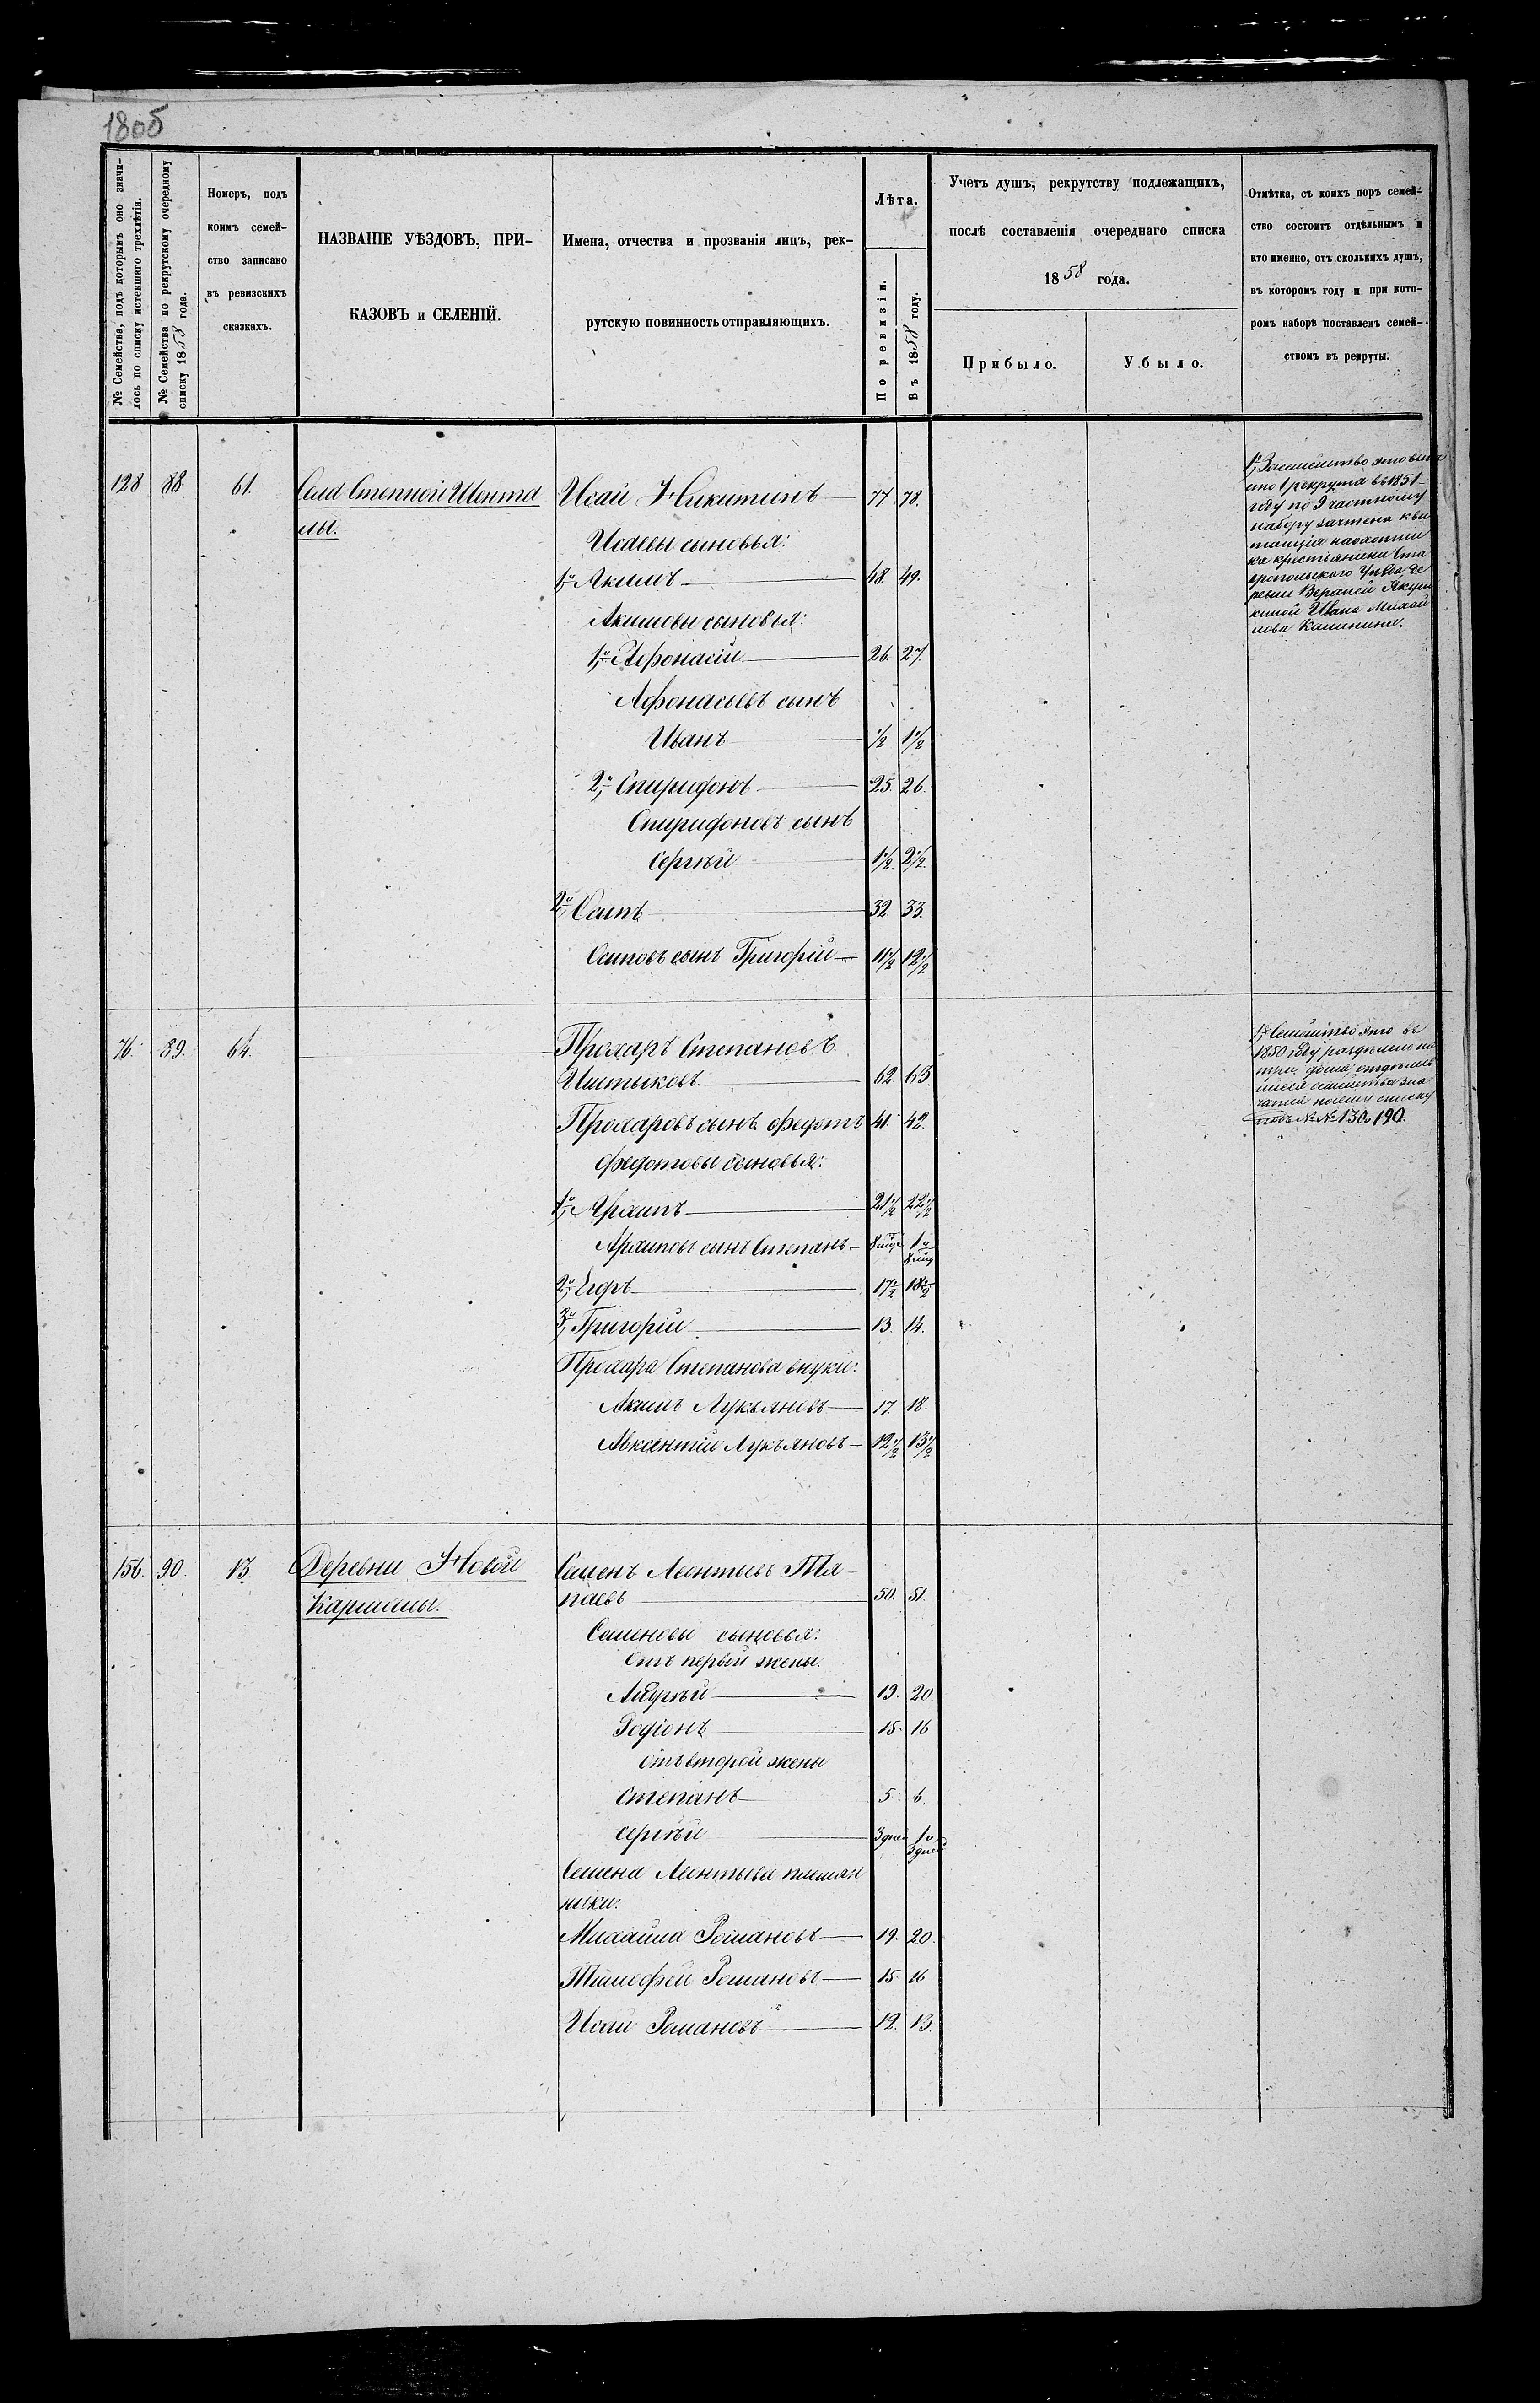 1805
№ Семейства, подъ которымъ оно значи-
лось по списку истекшаго трехлѣтія.
№ Семейства по рекрутскому очередному
списку 1858 года.
Номеръ, подъ
коимъ семей-
ство записано
въ ревизскихъ
сказкахъ.
НАЗВАНІЕ УѢЗДОВЪ, ПРИ-
КАЗОВЪ и СЕЛЕНІЙ.
Имена, отчества и прозванія лицъ, рек-
рутскую повинность отправляющихъ.
Лѣта.
По ревизіи.
Въ 1858 году.
Учетъ душъ, рекрутству подлежащихъ,
послѣ составленія очереднаго списка
1858 года.
Прибыло.
Убыло.
Отмѣтка, съ коихъ поръ семей-
ство состоитъ отдѣльнымъ и
кто именно, отъ сколькихъ душъ,
въ которомъ году и при кото-
ромъ наборѣ поставленъ семей-
ствомъ въ рекруты.
128. 88. 61. Села Степной Шента
лы.
Исай Никитинъ 77. 78.
Исаевы сыновья:
1й Акимъ 48. 49.
Акимовы сыновья:
1й Афонасій 26. 27.
Афонасьевъ сынъ
Иванъ ½ 1½
2й Спиридонъ 25. 26.
Спиридоновъ сынъ
Сергѣй 1½. 2½.
2й Осипъ 32. 33.
Осиповъ сынъ Григорій 11½ 12½
1, За семейство это
рекрута въ 1851
году по 9 частному
набору зачтена кви
танція
крестьянина Ста
вропольскаго Уѣзда де
ревни Верхней Якуш
киной Ивана Михай
лова Калинина.
76. 89. 64.
Прохаръ Степановъ
Иштыковъ. 62 63.
Прохаровъ сынъ Федотъ 41. 42.
Федотовы сыновья:
1й Архипъ 21½ 22½
Архиповъ сынъ Степанъ
2й Егоръ 17½ 18½
3й Григорій 13. 14.
Прохара Степанова внуки:
Акимъ Лукьяновъ 17. 18.
Авксентій Лукьяновъ 12½ 13½
1, Семейство это въ
1850 году раздѣлено на
три дома,
семейства зна
чатся по сему списку
подъ №№ 130 190.
156. 90. 13. Деревни Новой
Кармалы.
Семенъ Леонтьевъ Тя-
паевъ 50. 51.
Семеновы сыновья:
отъ первой жены.
Андрѣй 19. 20.
Родіонъ 15. 16
отъ второй жены
Степанъ 5. 6.
Сергѣй 3 дней 1 и
3 дней
Семена Леонтьева племян
ники:
Михайла Романовъ 19. 20.
Тимофей Романовъ 15 16
Исай Романовъ 12. 13.